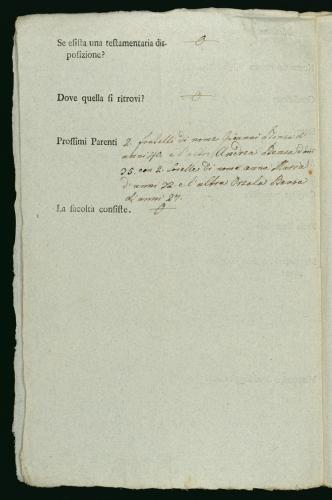 Se esista una testamentaria dis-
posizione?
Dove quella si ritrovi?
Prossimi Parenti 2. fratelli di nome Giovanni d
anni 40. e l'altro Andrea Banza d'anni
35. con 2. sorelle di nome anna Maria
d'anni 32 e l'altra Orsola Banza
d'anni 27.
La facoltà consiste.